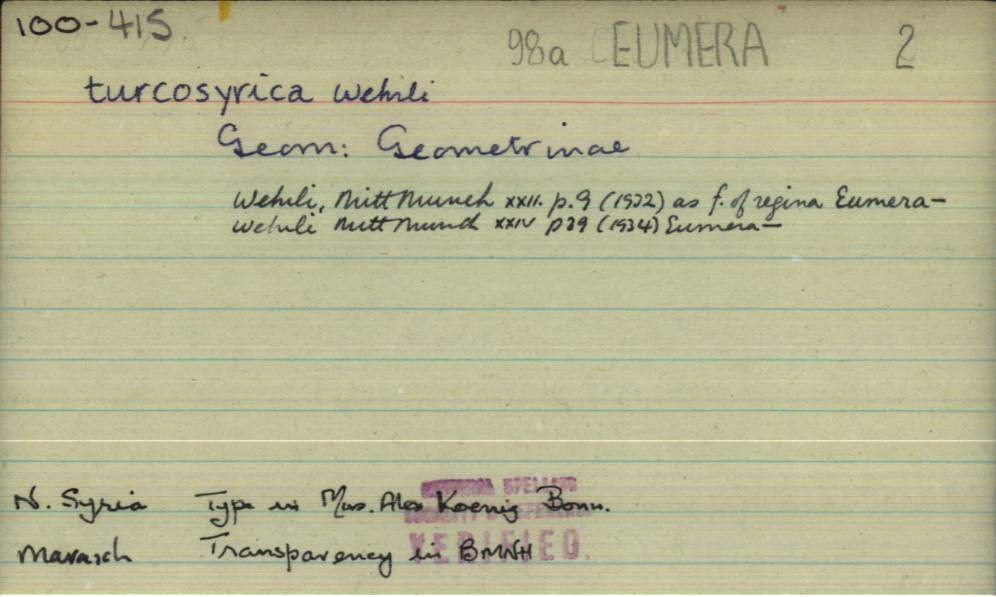 100-415.
98a EUMERA 2
turcosyrica Wehrli
Geom: Geometrinae
Wehrli, Mitt Munch XXII. p.9 (1932) as f. of regina Eumera—
Wehrli Mitt Munch XXIV p39 (1934) Eumera—
N. Syria Type in Mus. Alex Koenig Bonn.
Marasch Transparency in BMNH
VERIFIED.